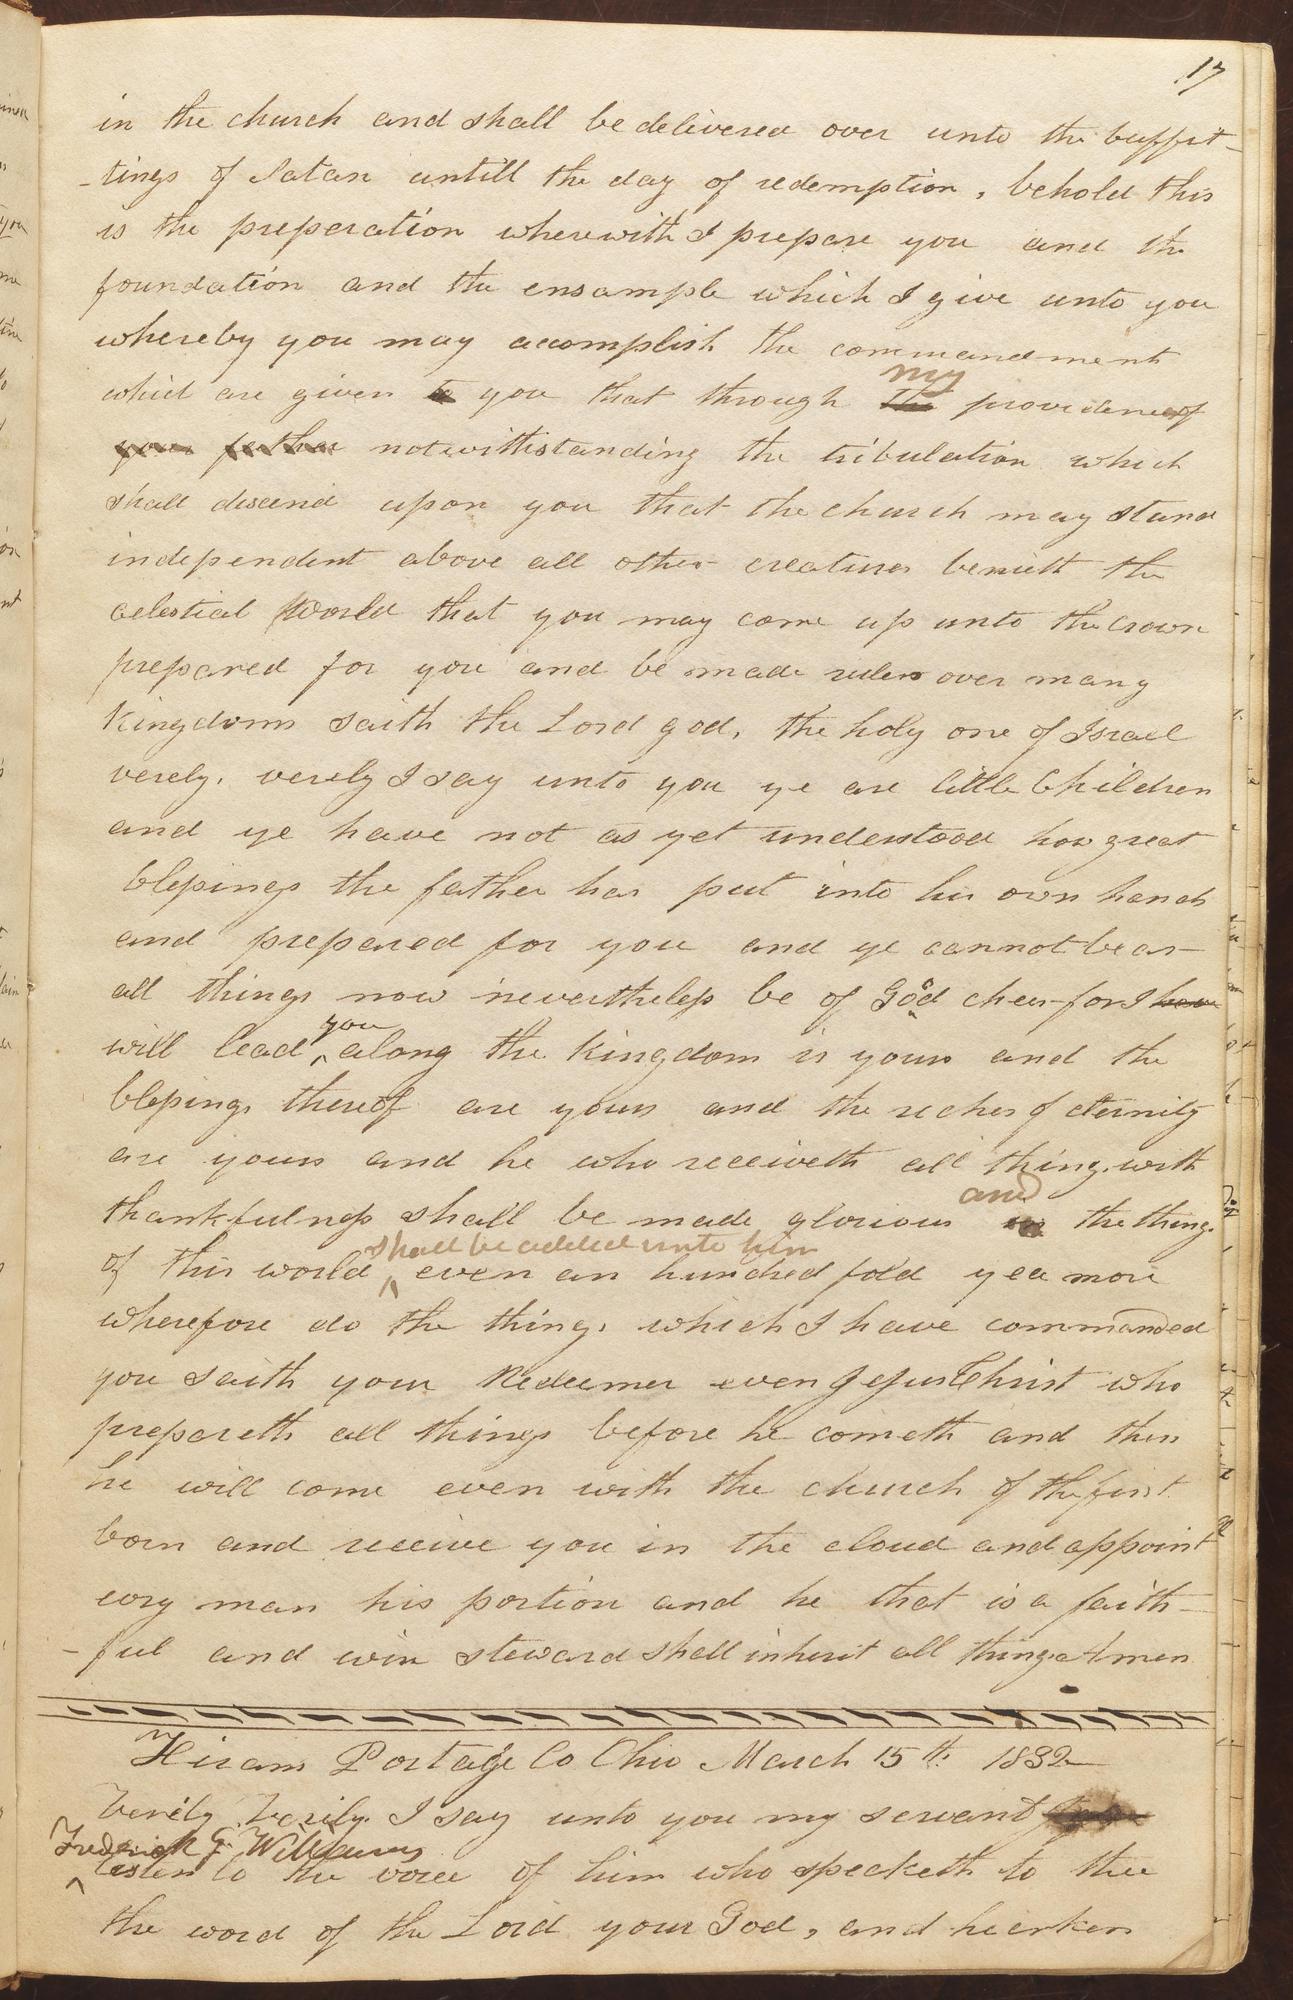 17
in the church and shall be delivered over unto the buffit-
-tings of Satan untill the day of redemption, behold this
is the preperation wherewith I prepare you and the
foundation and the ensample which I give unto you
whereby you may accomplish the commandment
my
which are given to you that through the providence of
your father notwithstanding the tribulation which
shall descend upon you that the church may stand
independent above all other creatures beneath the
celestial World that you may come up unto the crown
prepared for you and be made rulers over many
Kingdoms saith the Lord god, the holy one of Israel
verely, verely I say unto you ye are little Children
and ye have not as yet understood how great
blessings the father has put into his own hands
and prepared for you and ye cannot bear
all things now nevertheless be of Good cheer for I
you
will lead along the Kingdom is yours and the
blessings thereof are yours and the riches of eternity
are yours and he who receiveth all things with
and
thankfulness shall be made glorious the things
shall be added unto him
of this world even an hundred fold yea more
wherefore do the things which I have commanded
you saith your Redeemer even Jesus Christ who
prepareth all things before he cometh and then
he will come even with the church of the first
born and receive you in the cloud and appoint
evry man his portion and he that is a faith-
-ful and wise steward shall inherit all things Amen
Hiram Portage Co Ohio March 15th 1832
Verily Verily I say unto you my servent
Frederick G Williams
Listen to the voice of him who speaketh to thee
the word of the Lord your God, and hearken